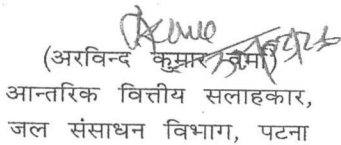 (अरविन्द कुमार वर्मा)
आन्तरिक वित्तीय सलाहकार,
जल संसाधन विभाग, पटना